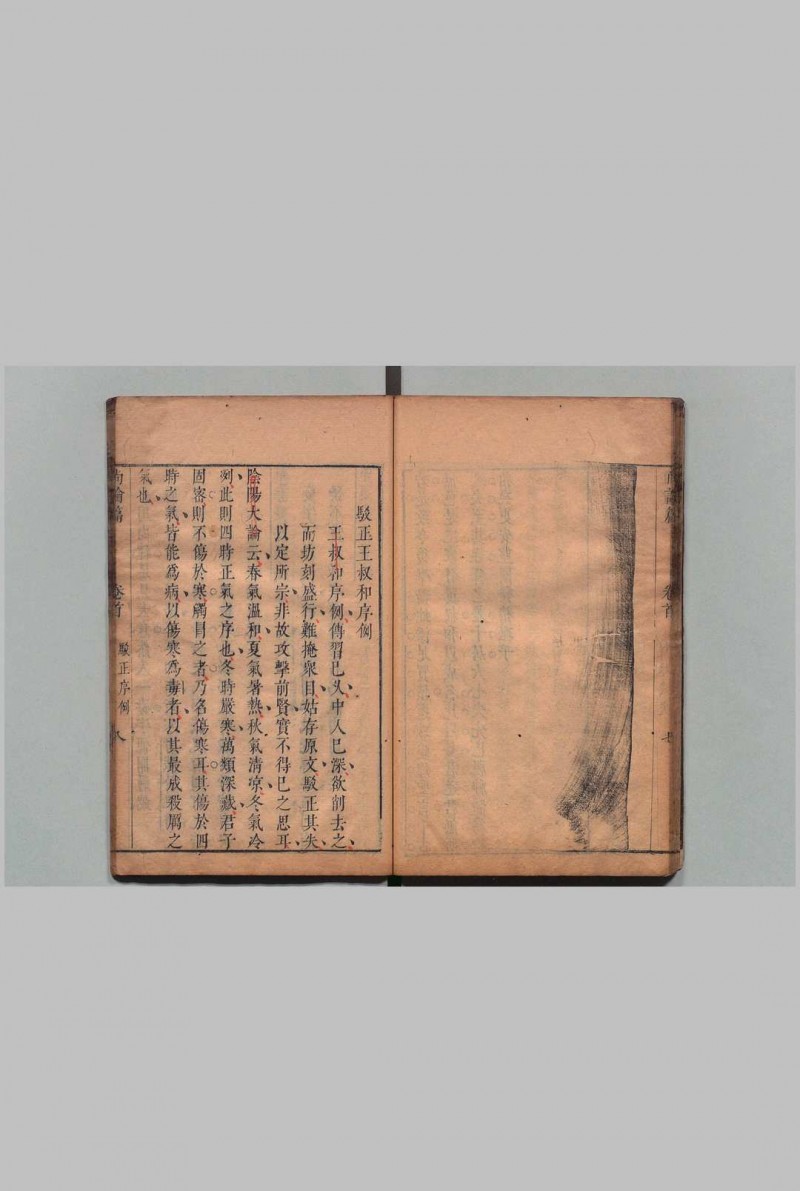 駁正王叔和序例
王叔和序例傳習已久中人已深欲削去之
而坊刻盛行難掩衆目姑存原文駁正其失
以定所宗非故攻擊前賢實不得已之思耳
陰陽大論云春氣温和夏氣暑熱秋氣清凉冬氣冷
冽此則四時正氣之序也冬時嚴寒萬類深藏君子
固密則不傷於寒觸冒之者乃名傷寒耳其傷於四
時之氣皆能為病以傷寒為毒者以其最成殺厲之
氣也
尚論篇 卷首 駁正序例 八
卷首 七